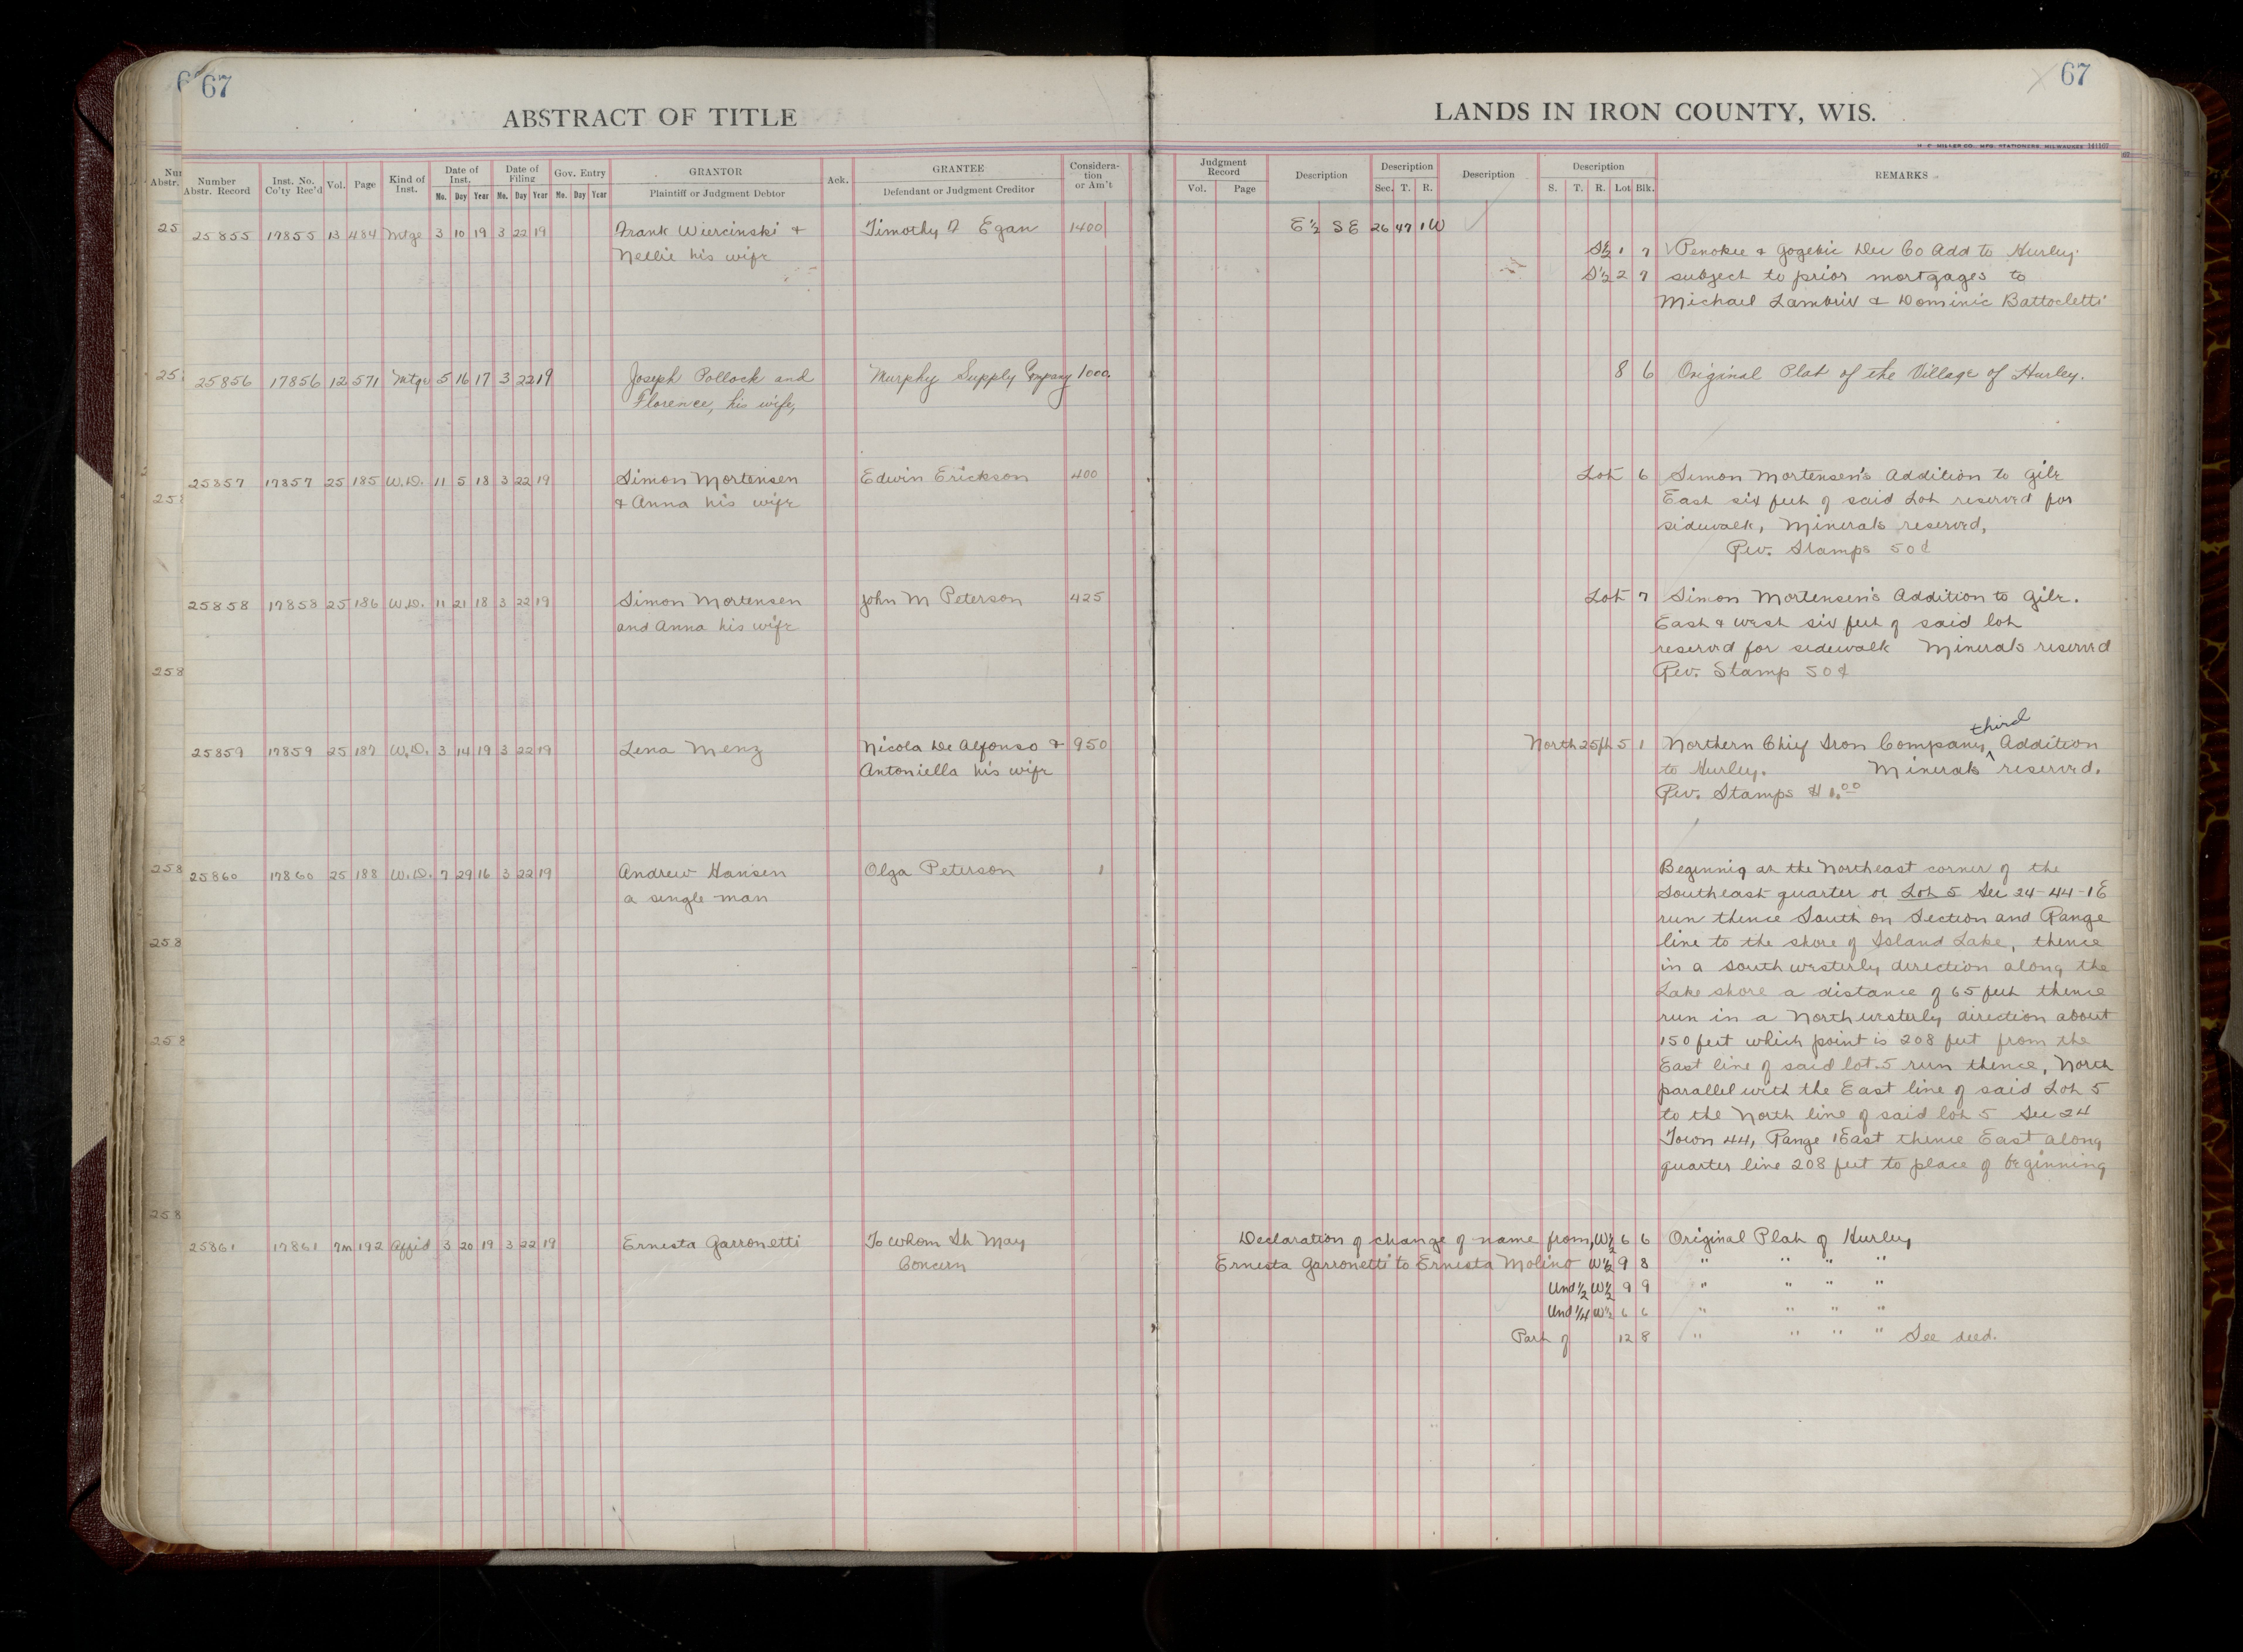 67
67
ABSTRACT OF TITLE
LANDS IN IRON COUNTY, WIS.
H. C. MILLER CO., MFG. STATIONERS, MILWAUKEE 141167
Number Abstr. Record Inst. No. Co'ty Rec'd Vol. Page Kind of Inst. Date of Inst. Mo. Day Year Date of Filing Mo. Day Year Gov. Entry Mo. Day Year GRANTOR Plaintiff or Judgment Debtor Ack. GRANTEE Defendant or Judgment Creditor Considera-tion or Am't Judgment Record Vol. Page Description Description Sec. T. R. Description Description S. T. R. Lot Blk. REMARKS
25855 17855 13 484 Mtge 3 10 19 3 22 19 Frank Wiercinski & Timothy D Egan 1400 E½ SE 26 47 1W
Nellie his wife S½ 1 7 Penokee & Gogebic Dev Co Add to Hurley
S½ 2 7 subject to prior mortgages to
Michael Lambrix & Dominic Battocletti
25856 17856 12 571 Mtge 5 16 17 3 22 19 Joseph Pollock and Murphy Supply Company 1000. 8 6 Original Plat of the Village of Hurley.
Florence, his wife,
25857 17857 25 185 W.D. 11 5 18 3 22 19 Simon Mortensen Edwin Erickson 400 Lot 6 Simon Mortensen's Addition to Gile
& Anna his wife East six feet of said Lot reserved for
sidewalk, Minerals reserved,
Rev. Stamps 50¢
25858 17858 25 186 W.D. 11 21 18 3 22 19 Simon Mortensen John M Peterson 425 Lot 7 Simon Mortensen's Addition to Gile.
and Anna his wife East & West six feet of said lot
reserved for sidewalk Minerals reserved
Rev. Stamp 50¢
third
25859 17859 25 187 W.D. 3 14 19 3 22 19 Lena Menz Nicola De Alfonso & 950 North 25 ft 5 1 Northern Chief Iron Company ^ Addition
Antoniella his wife to Hurley. Minerals reserved.
Rev. Stamps $1.00
25860 17860 25 188 W.D. 7 29 16 3 22 19 Andrew Hansen Olga Peterson 1 Beginnig at the Northeast corner of the
a single man Southeast quarter or Lot 5 Sec 24-44-1E
run thence South on Section and Range
line to the shore of Island Lake, thence
in a southwesterly direction along the
Lake shore a distance of 65 feet thence
run in a Northwesterly direction about
150 feet which point is 208 feet from the
East line of said lot 5 run thence, North
parallel with the East line of said Lot 5
to the North line of said lot 5 Sec 24
Town 44, Range 1East thence East along
quarter line 208 feet to place of beginning
25861 17861 7m 192 Affid 3 20 19 3 22 19 Ernesta Garronetti To Whom It May Declaration of change of name from, W½ 6 6 Original Plat of Hurley
Concern Ernesta Garronetti to Ernesta Molino W½ 9 8 " " " "
Und ½ W½ 9 9 " " " "
Und ¼ W½ 6 6 " " " "
Part of 12 8 " " " " See deed.